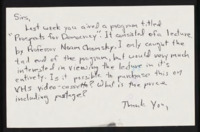 Sirs,
Last week you aired a program titled
"Prospects for Democracy". It consisted of a lecture
by Professor Noam Chomsky. I only caught the
tail end of the program, but would very much
interested in viewing the lecture in it's
entirety. Is it possible to purchase this on
VHS video-cassette? What is the price
including postage?
Thank You,